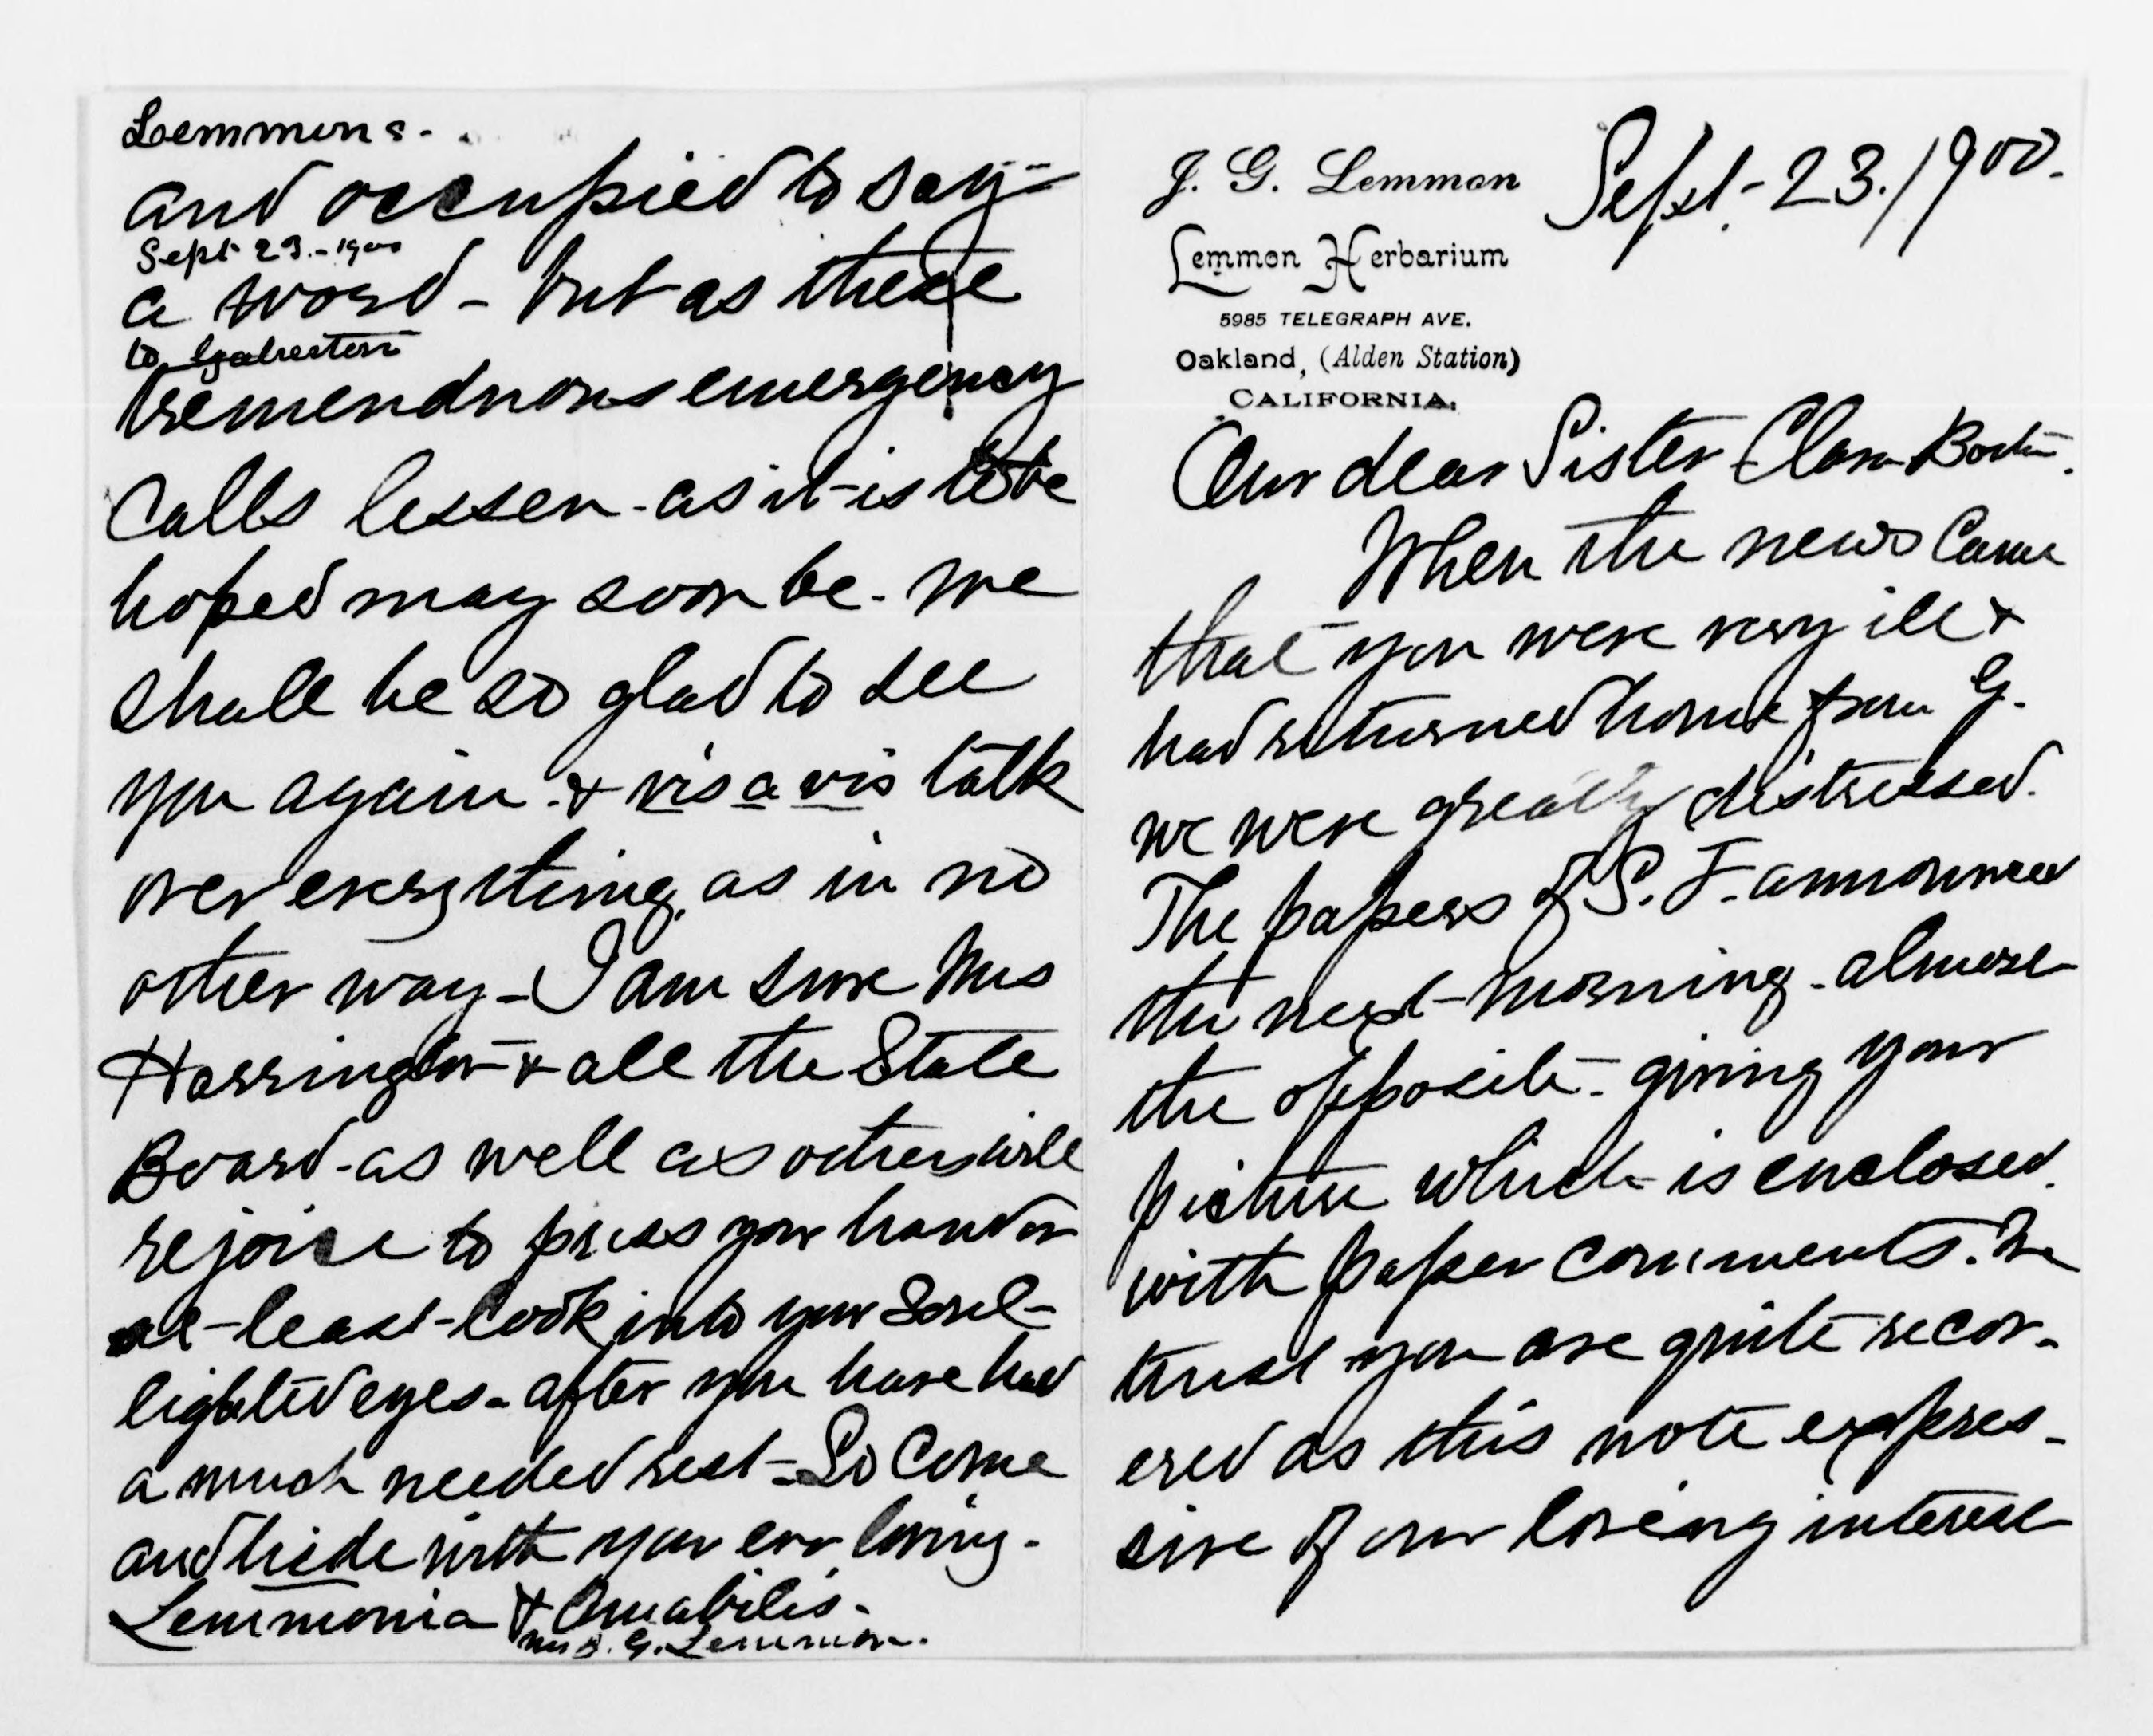 J. G. Lemmon
Sept. 23. / 1900.
Lemmon Herbarium
5985 TELEGRAPH AVE.
Oakland, (Alden Station)
CALIFORNIA.
Our dear Sister Clara Barton.
When the news came
that you were very ill &
had returned home from G.
we were greatly distressed.
The papers of S. F. announced
the next morning - almost
the opposite - giving your
picture which is enclosed.
with paper comments. We
trust you are quite recov-
ered as this note expres-
sive of our loving interest
Lemmons.
and occupied to say
Sept 23. - 1900
a word - but as these
to Galveston
tremenduous emergency
Calls lessen - as it is to be
hoped may soon be - we
shall be so glad to see
you again - & vis a vis talk
over everything, as in no
other way - I am sure Mrs
Harrington & all the State
Board - as well as others will
rejoice to press your hand or
at - least - look into your soul -
lighted eyes - after you have had
a much needed rest - So Come
and hide with your ever loving -
Lemmonia & Amabilis.
Mrs J. G. Lemmon.